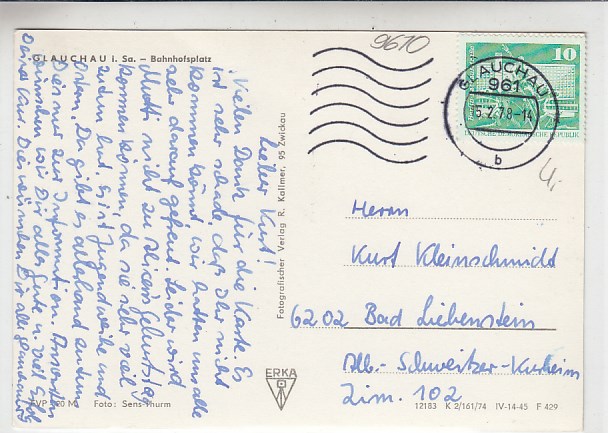 GLAUCHAU i. Sa. — Bahnhofsplatz
9610
10
DEUTSCHE DEMOKRATISCHE REPUBLIK
GLAUCHAU
961
15.2.78-14
b
Lieber Kurt!
Vielen Dank für die Karte. Es
ist sehr schade, daß Ihr nicht
kommen könnt, wir hatten uns alle
sehr darauf gefreut. Leider wird
Mutti nicht zu Deinem Geburtstag
kommen können, da sie sehr viel
zu tun hat
Jugendweihe und
Ostern. Da gibt es allerhand
Dies nur zur Information. Ansonsten
wünschen wir Dir alles Gute u. viel
Deine Kur.
Dir alle
Fotografischer Verlag R. Kallmer, 95 Zwickau
Herrn
Kurt Kleinschmidt
6202 Bad Liebenstein
Alb.-Schweitzer-Kurheim
Zim. 102
ERKA
EVP 0,20 M Foto: Sens-Thurm
12183 K 2/161/74 IV-14-45 F 429